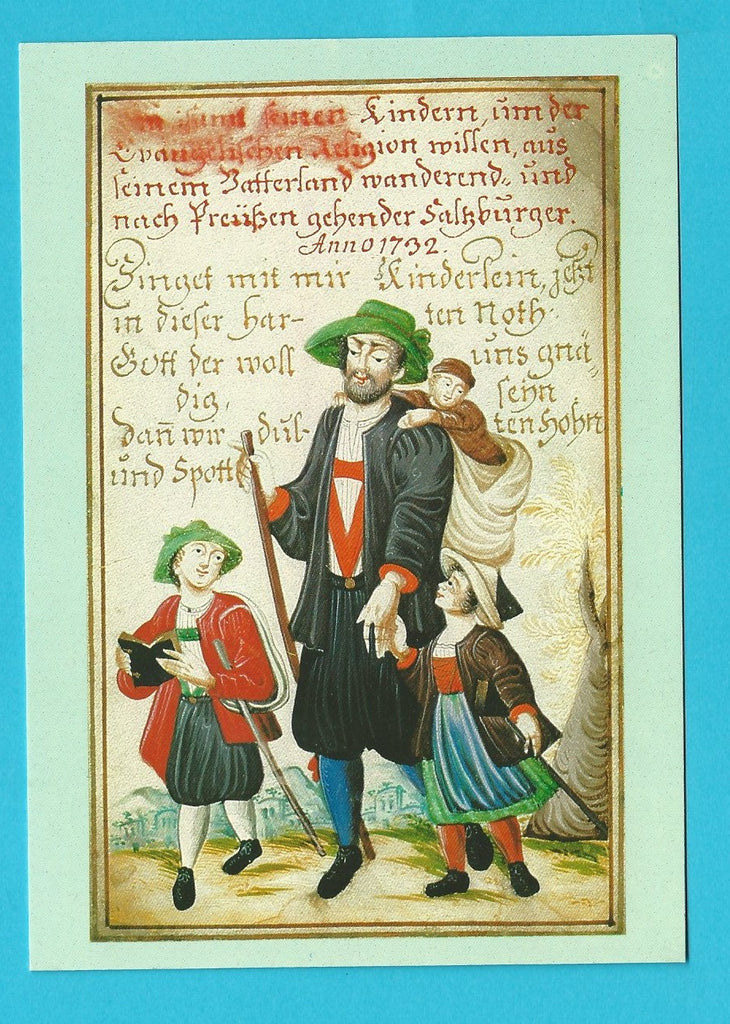 samt seinen Kindern, üm der
Evangelischen Religion willen, aus
seinem Vatterland wanderend, und
nach Preüßen gehender Saltzbürger.
Anno 1732.
Singet mit mir Kinderlein, jetzt
in dieser har- ten Noth.
Gott der woll uns gnä-
dig, seÿn
dan̄ wir dül- ten Hohn
und Spott